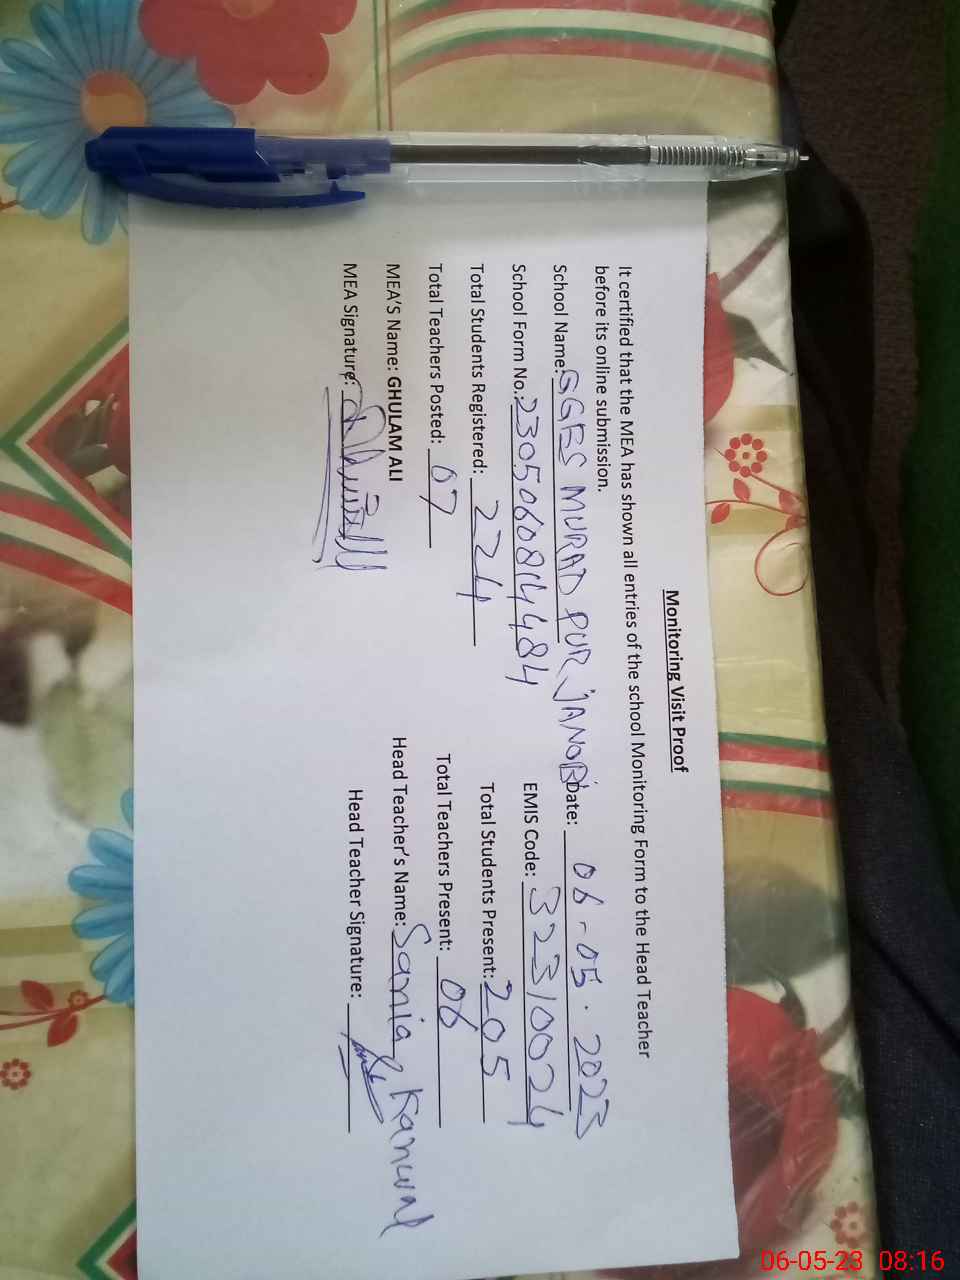 Monitoring Visit Proof
It certified that the MEA has shown all entries of the school Monitoring Form to the Head Teacher
before its online submission.
School Name: GGES MURAD PUR JANOBI Date: 06-05.2023
School Form No.: 2305060814484 EMIS Code: 32310024
Total Students Registered: 224 Total Students Present: 205
Total Teachers Posted: 07 Total Teachers Present: 06
MEA'S Name: GHULAM ALI Head Teacher's Name: Sania Kanwal
MEA Signature: Head Teacher Signature:
06-05-23 08:16